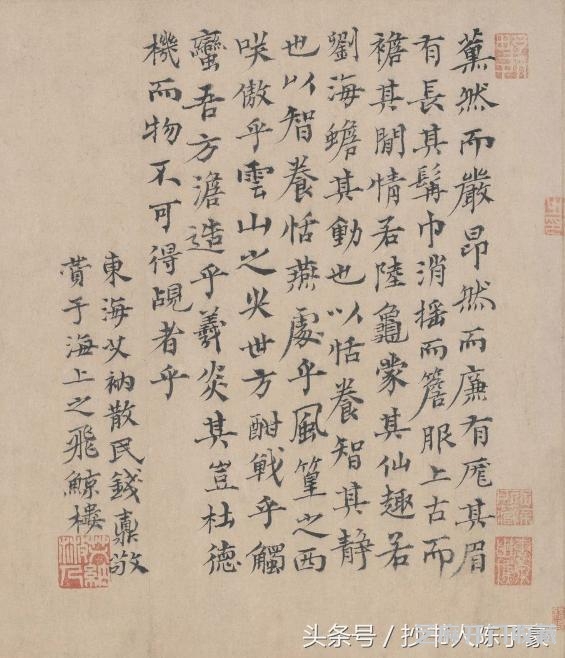 薰然而嚴昂然而廉有厖其眉
有長其髯巾消摇而簷服上古而
襜其閒情若陸龜蒙其仙趣若
劉海蟾其動也以恬養智其靜
也以智養恬燕處乎風篁之西
咲傲乎雲山之尖世方酣戰乎觸
蠻吾方澹造乎羲炎其豈杜德
機而物不可得覘者乎
東海艾衲散民錢鼒敬
賛于海上之飛鯨樓
头条号／抄书人陈子豪